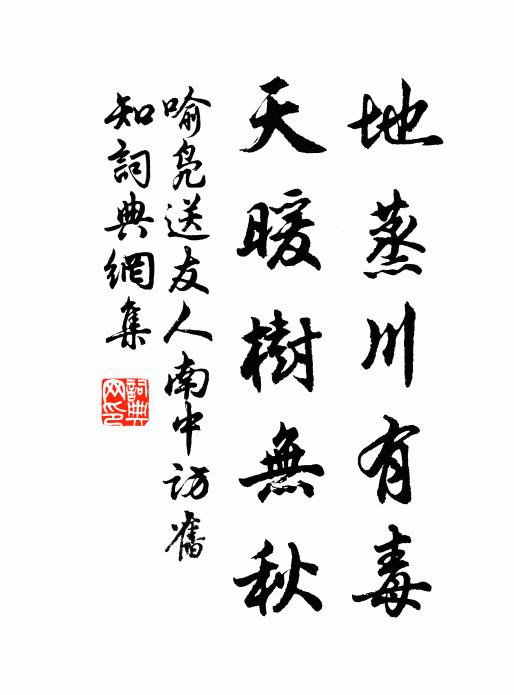 地蒸川有毒
天暖樹無秋
喻凫送友人南中訪舊
知詞典網集
詞典网印